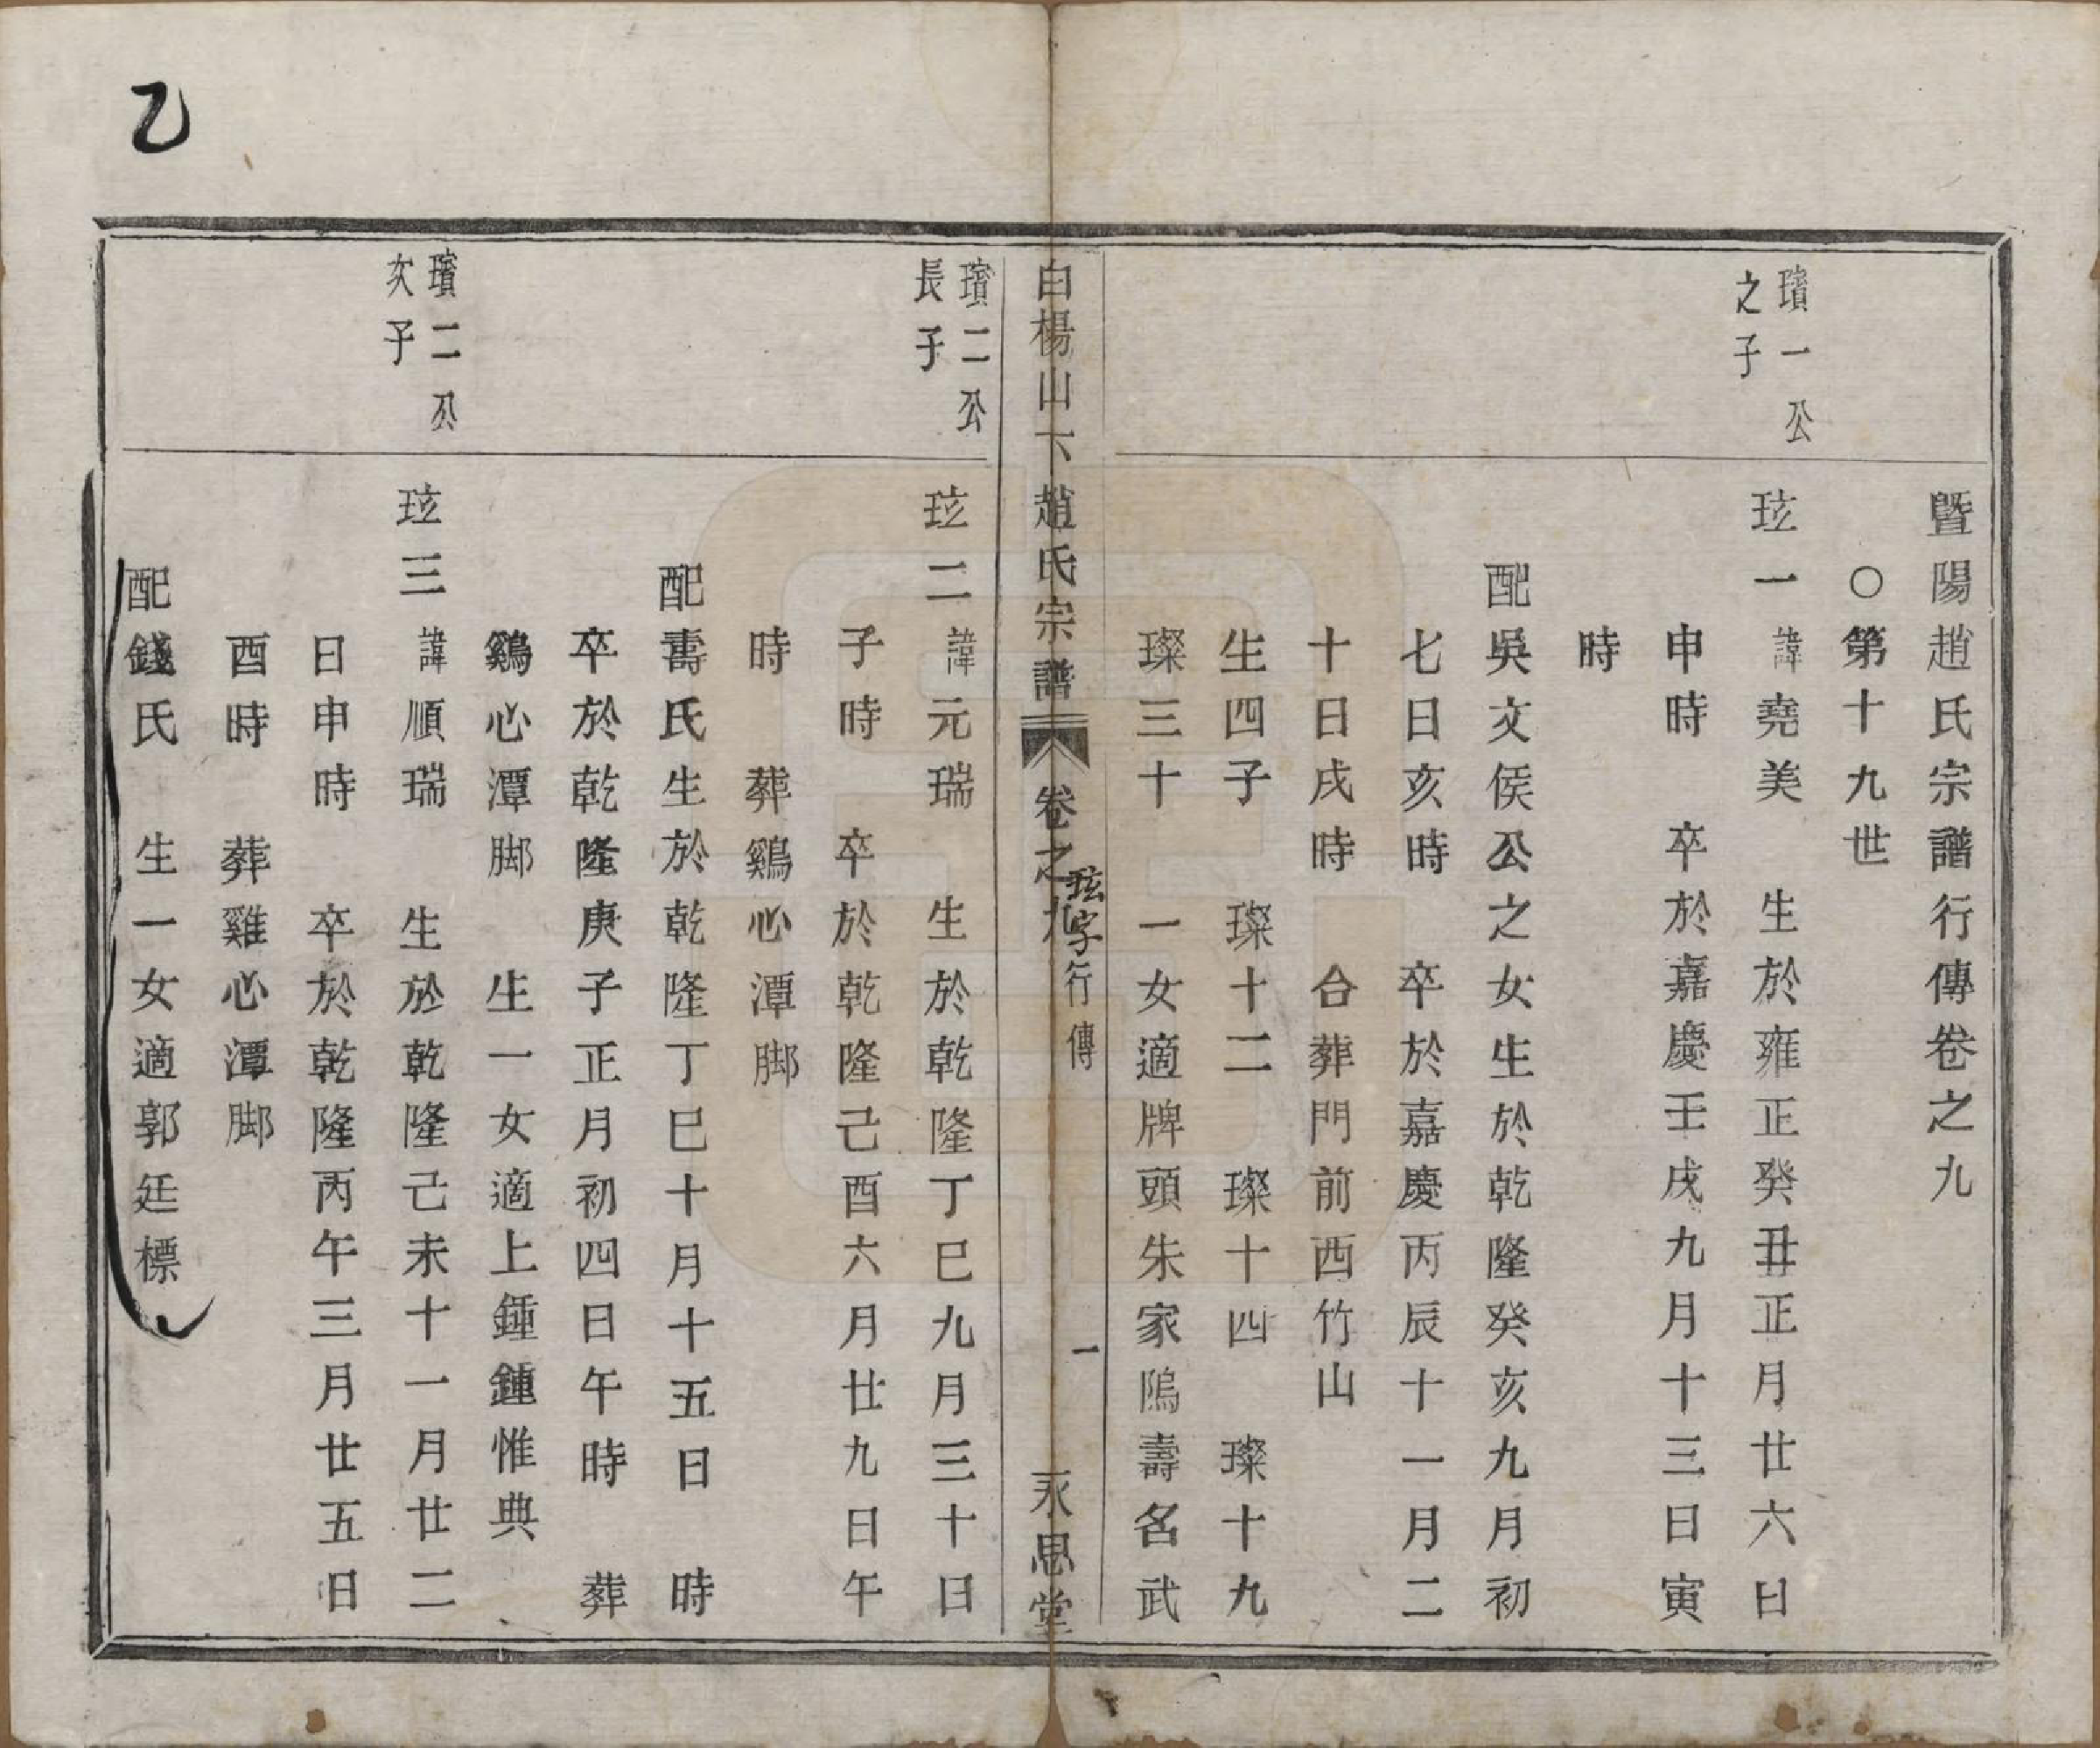 暨陽趙氏宗譜行傳卷之九
○第十九世
璸一公
之子
玹一諱堯美　生於雍正癸丑正月廿六日
申時　卒於嘉慶壬戌九月十三日寅
時
配吳文侯公之女生於乾隆癸亥九月初
七日亥時　卒於嘉慶丙辰十一月二
十日戌時　合葬門前西竹山
生四子　璨十二　璨十四　璨十九
璨三十　一女適牌頭朱家隖壽名武
白楊山下趙氏宗譜　卷之九　玹字行傳　一　永思堂
璸二公
長子
玹二諱元瑞　生於乾隆丁巳九月三十日
子時　卒於乾隆己酉六月廿九日午
時　葬鷄心潭脚
配壽氏生於乾隆丁巳十月十五日　時
卒於乾隆庚子正月初四日午時　葬
鷄心潭脚　生一女適上鍾鍾惟典
璸二公
次子
玹三諱順瑞　生於乾隆己未十一月廿二
日申時　卒於乾隆丙午三月廿五日
酉時　葬雞心潭脚
配錢氏　生一女適郭廷標
乙